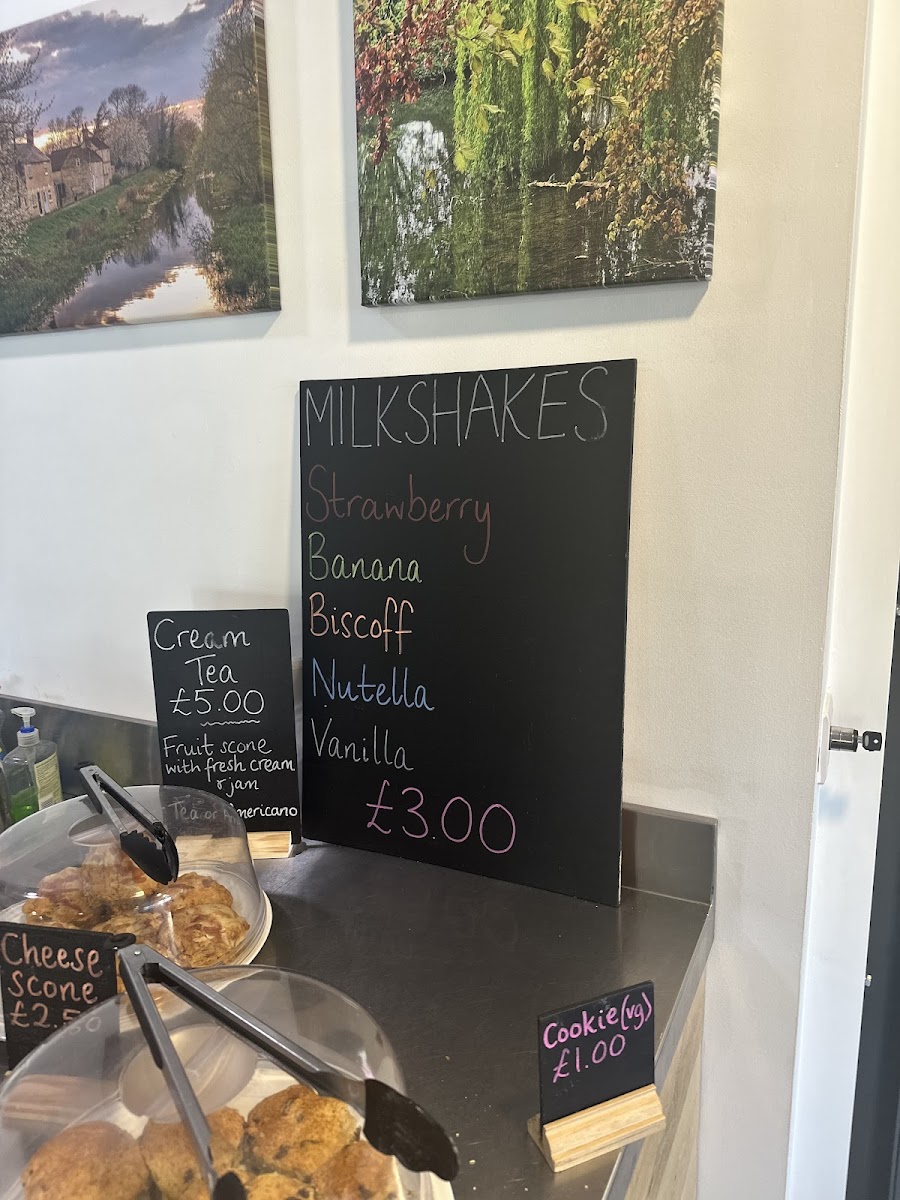 MILKSHAKES
Strawberry
Banana
Biscoff
Nutella
Vanilla
£3.00
Cream
Tea
£5.00
Fruit scone
with fresh cream
& jam
Tea or Americano
Cheese
scone
£2.50
Cookie(vg)
£1.00